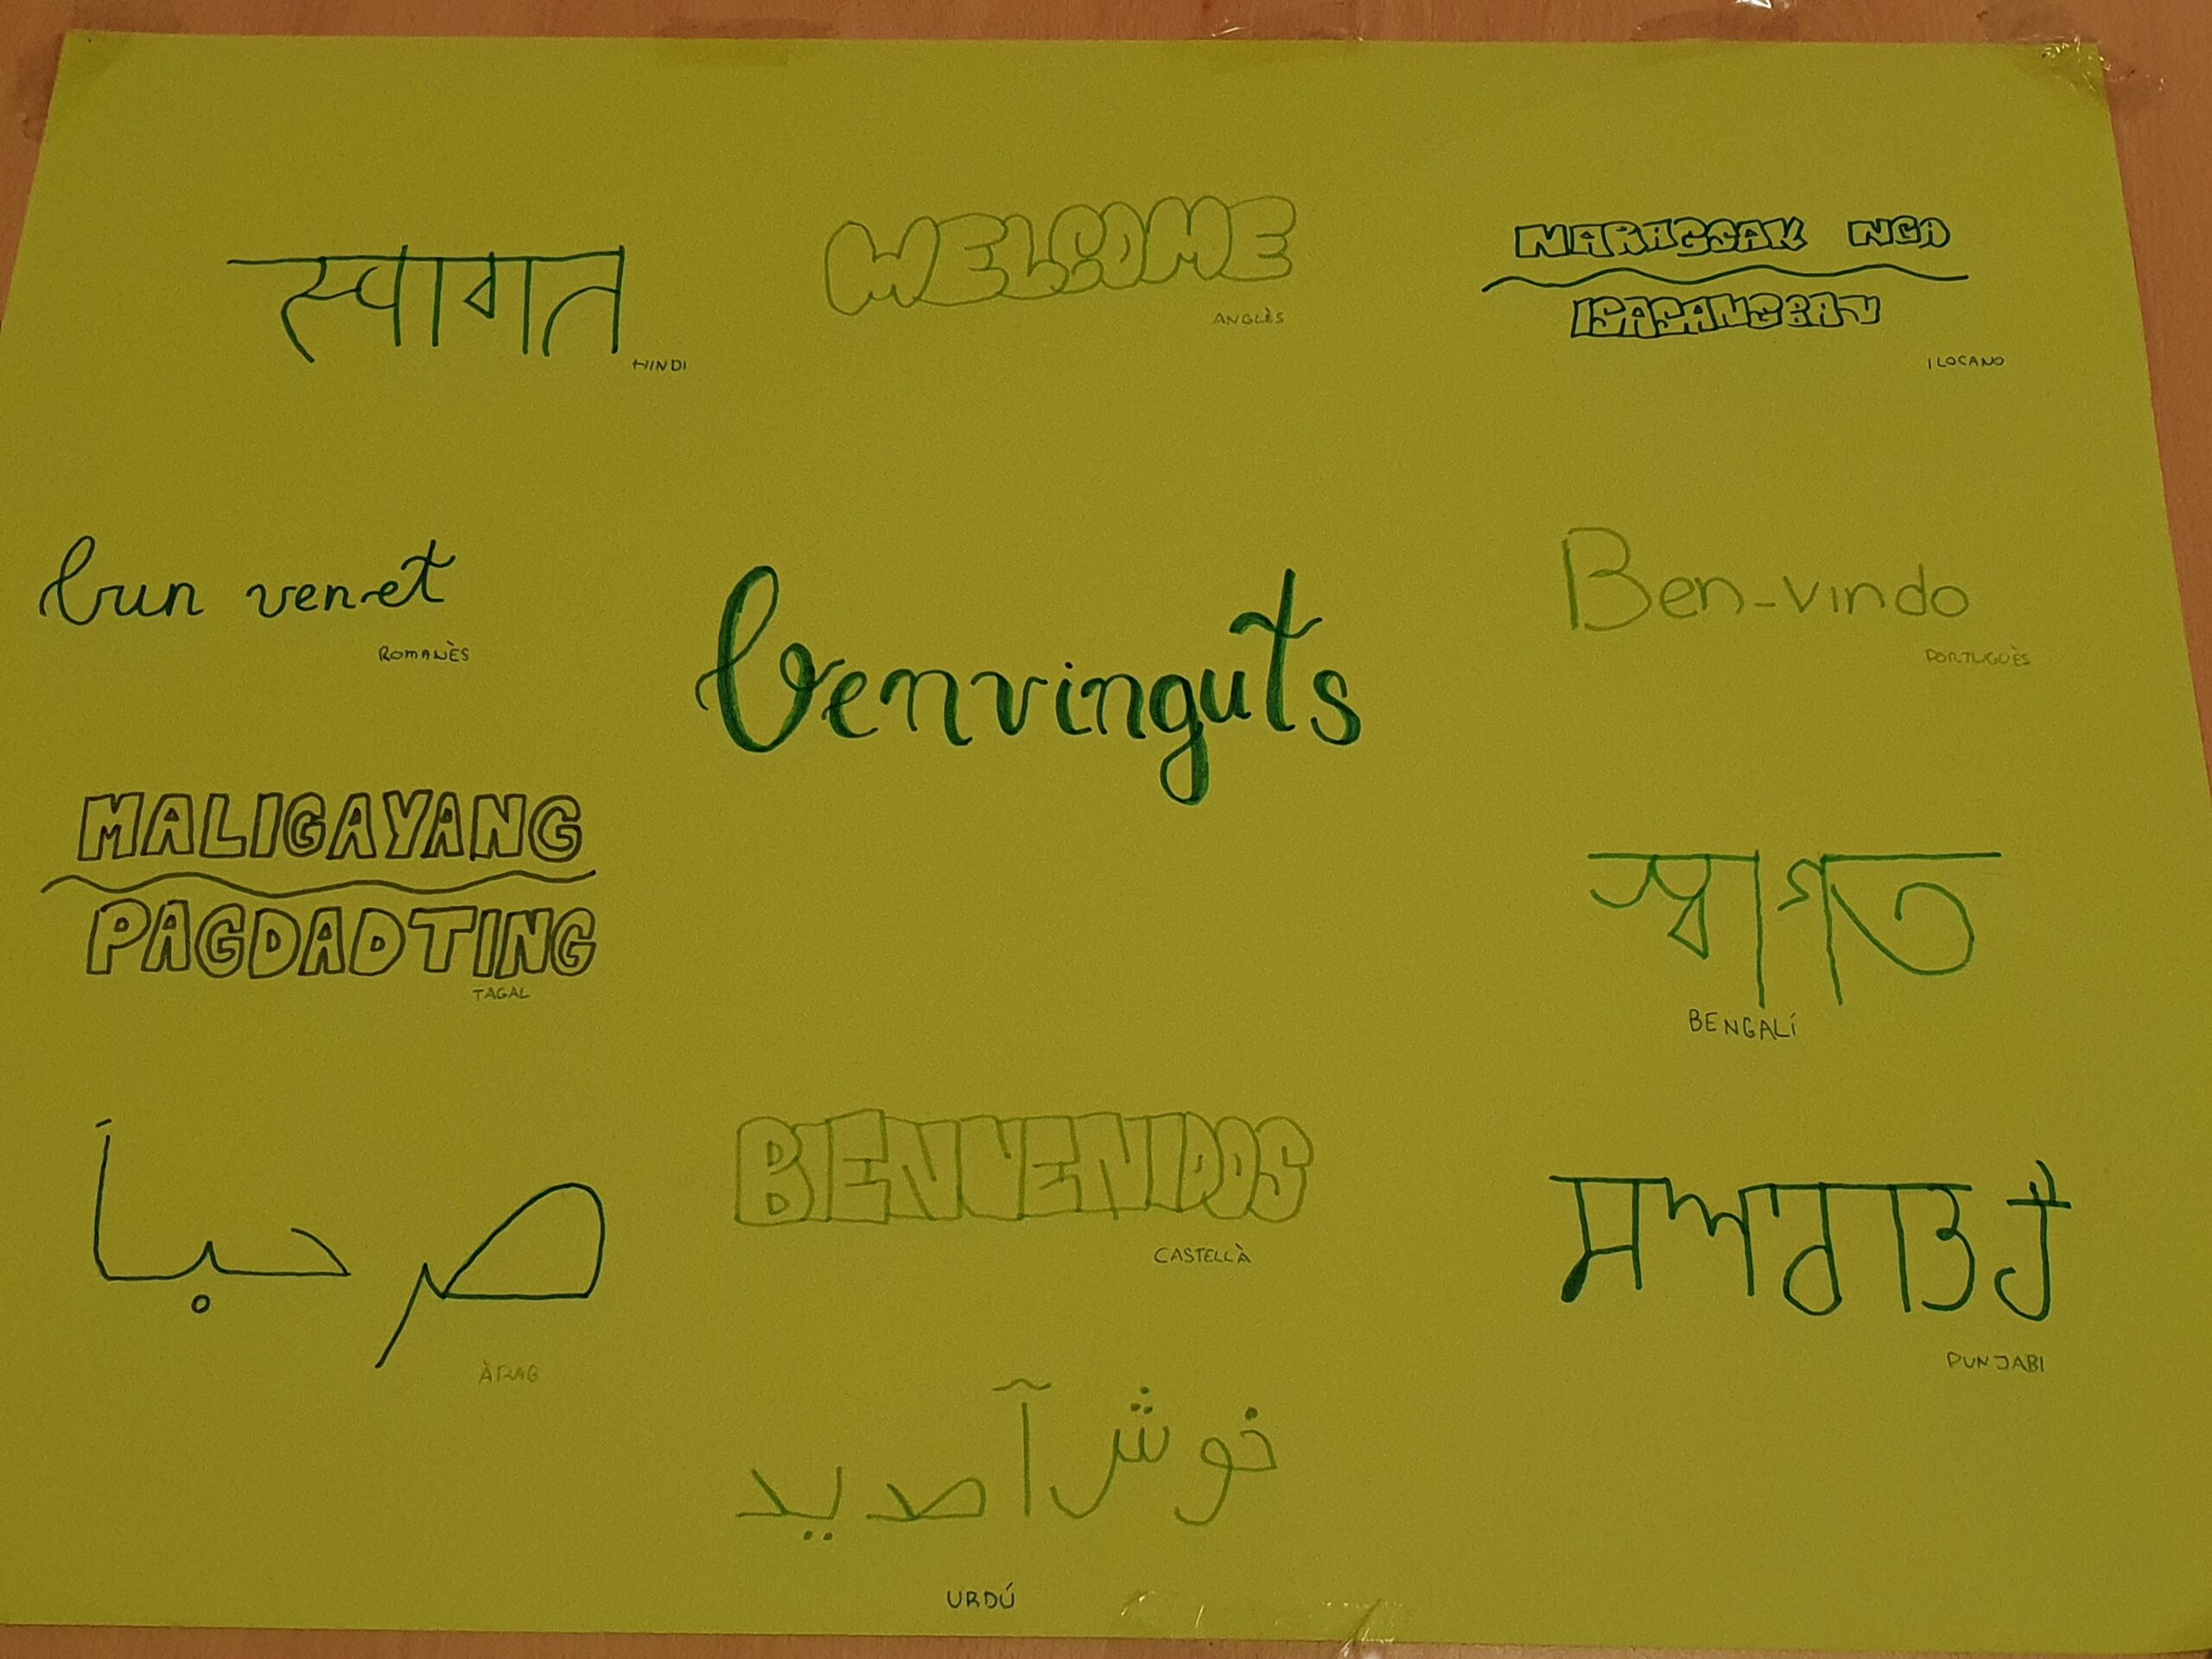 स्वागत
HINDI
WELCOME
ANGLÈS
NARAGSAK NGA
ISASANGBAY
ILOCANO
bun venet
ROMANÈS
benvinguts
Ben-vindo
PORTUGUÈS
MALIGAYANG
PAGDADTING
TAGAL
স্বাগত
BENGALÍ
صر حبا
ÀRAB
BIENVENIDOS
CASTELLÀ
ਸਆਗਤ ਹੈ
PUNJABI
خوش آصدید
URDÚ